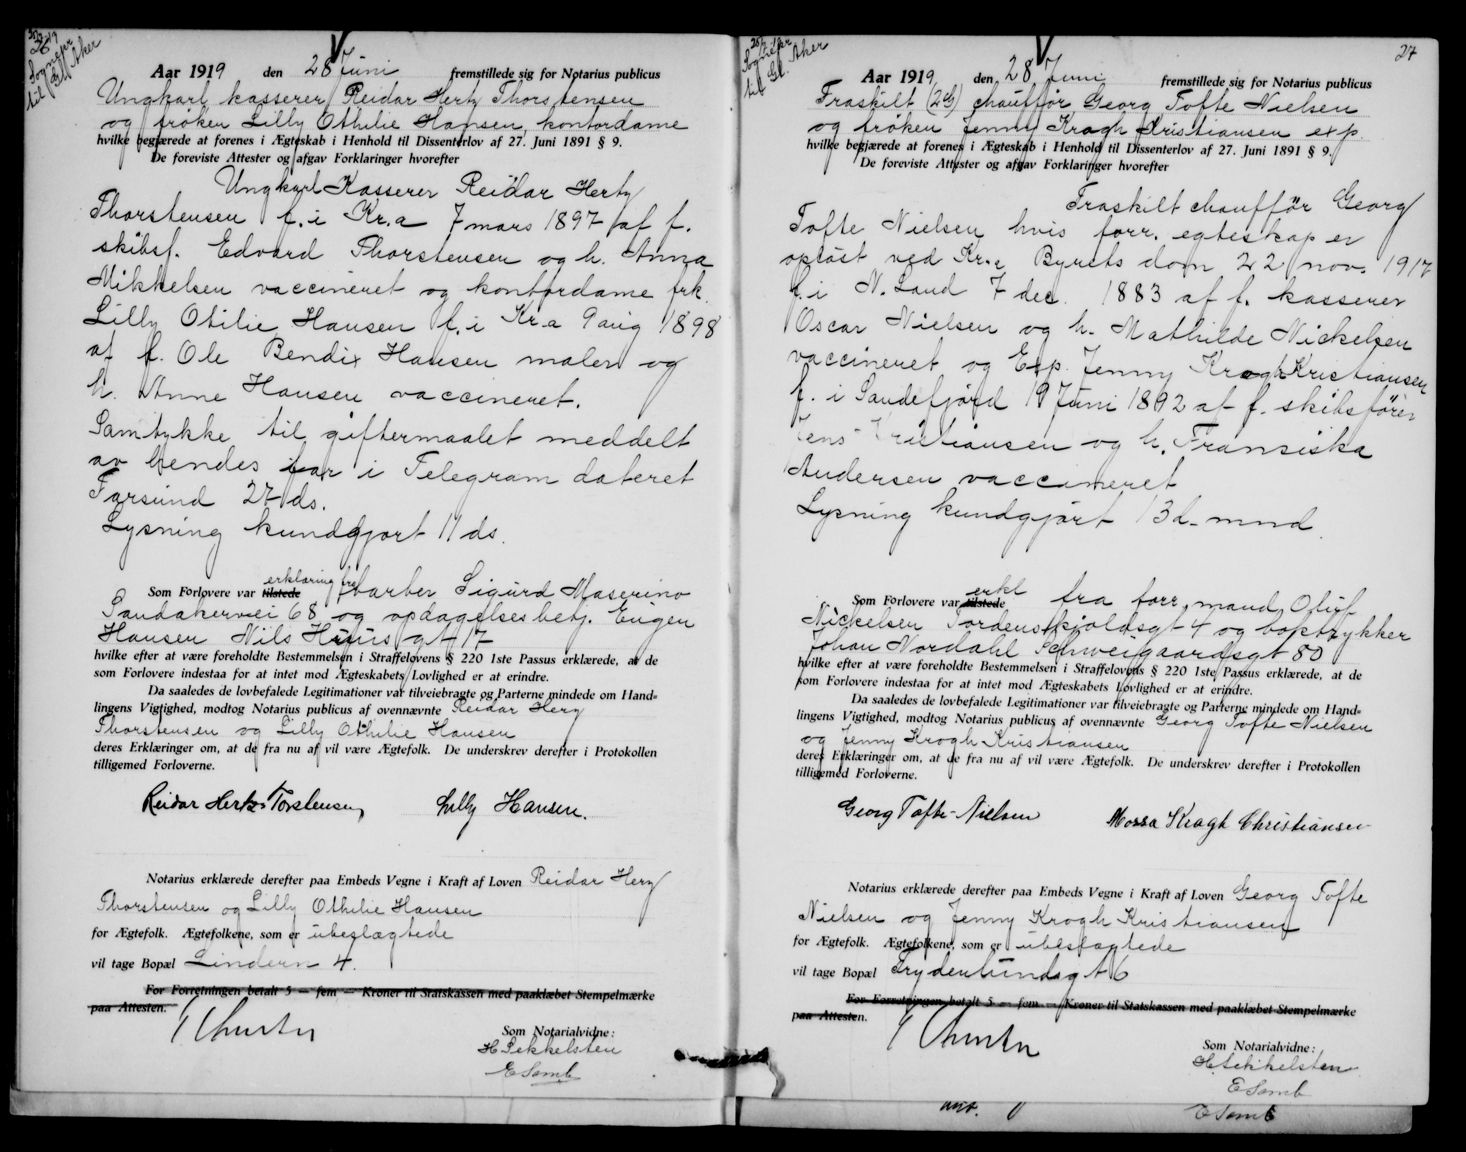 Sognepr
til Gl. Aker
Aar 1919 den 28 Juni fremstillede sig for Notarius publicus
Ungkarl kasserer Reidar Hertz Thorstensen
og frøken Lilly Othilie Hansen, kontordame
hvilke begjærede at forenes i Ægteskab i Henhold til Dissenterlov af 27. Juni 1891 § 9.
De foreviste Attester og afgav Forklaringer hvorefter
Ungkarl Kasserer Reidar Hertz
Thorstensen f. i Kr.a 7 mars 1897 af f.
skibsf. Edvard Thorstensen og h. Anna
Mikkelsen vaccineret og kontordame frk.
Lilly Otilie Hansen f. i Kr.a 9 aug 1898
af f. Ole Bendix Hansen maler og
h. Anne Hansen vaccineret.
Samtykke til giftermaalet meddelt
av hendes far i Telegram dateret
Farsund 27 ds.
Lysning kundgjort 11 ds.
erklæring fra
Som Forlovere var tilstede barber Sigurd Maserino
Sandakerveei 68 og opdagelsesbetj. Eugen
Hansen Nils Huus gt 17
hvilke efter at være foreholdte Bestemmelsen i Straffelovens § 220 1ste Passus erklærede, at de
som Forlovere indestaa for at intet mod Ægteskabets Lovlighed er at erindre.
Da saaledes de lovbefalede Legitimationer var tilveiebragte og Parterne mindede om Hand-
lingens Vigtighed, modtog Notarius publicus af ovennævnte Reidar Herz
Thorstensen og Lilly Othilie Hansen
deres Erklæringer om, at de fra nu af vil være Ægtefolk. De underskrev derefter i Protokollen
tilligemed Forloverne.
Reidar Hertz Torstensen Lilly Hansen.
Notarius erklærede derefter paa Embeds Vegne i Kraft af Loven Reidar Herz
Thorstensen og Lilly Othilie Hansen
for Ægtefolk. Ægtefolkene, som er ubeslægtede
vil tage Bopæl Lindern 4.
For Forretningen betalt 5 — fem — Kroner til Statskassen med paaklæbet Stempelmærke
paa Attesten.
Som Notarialvidne:
H Sekkelsten
E Samb
27
Sognepr
til Gl. Aker
Aar 1919 den 28 Juni fremstillede sig for Notarius publicus
Fraskilt (2G) chauffør Georg Tofte Nielsen
og frøken Jenny Kragh Kristiansen exp.
hvilke begjærede at forenes i Ægteskab i Henhold til Dissenterlov af 27. Juni 1891 § 9.
De foreviste Attester og afgav Forklaringer hvorefter
Fraskilt chauffør Georg
Tofte Nielsen hvis forr. egteskap er
opløst ved Kr.a Byrets dom 22 nov. 1917
f. i N. Land 7 dec. 1883 af f. kasserer
Oscar Nielsen og h. Mathilde Nickelsen
vaccineret og Exp. Jenny Kragh Kristiansen
f. i Sandefjord 19 Juni 1892 af f. skibsfører
Jens Kristiansen og h. Fransiska
Andersen vaccineret
Lysning kundgjort 13 d. mnd.
erkl
Som Forlovere var tilstede fra forr. mand Oluf
Nickelsen Tordenskjoldsgt 4 og boktrykker
Johan Nordahl Schweigaardsgt 50
hvilke efter at være foreholdte Bestemmelsen i Straffelovens § 220 1ste Passus erklærede, at de
som Forlovere indestaa for at intet mod Ægteskabets Lovlighed er at erindre.
Da saaledes de lovbefalede Legitimationer var tilveiebragte og Parterne mindede om Hand-
lingens Vigtighed, modtog Notarius publicus af ovennævnte Georg Tofte Nielsen
og Jenny Krogh Kristiansen
deres Erklæringer om, at de fra nu af vil være Ægtefolk. De underskrev derefter i Protokollen
tilligemed Forloverne.
Georg Tofte-Nielsen Mossa Kragh Christiansen
Notarius erklærede derefter paa Embeds Vegne i Kraft af Loven Georg Tofte
Nielsen og Jenny Krogh Kristiansen
for Ægtefolk. Ægtefolkene, som er ubeslægtede
vil tage Bopæl Frydenlundsgt 6
For Forretningen betalt 5 — fem — Kroner til Statskassen med paaklæbet Stempelmærke
paa Attesten.
Som Notarialvidne:
H Sekkelsten
E Samb
E Samb